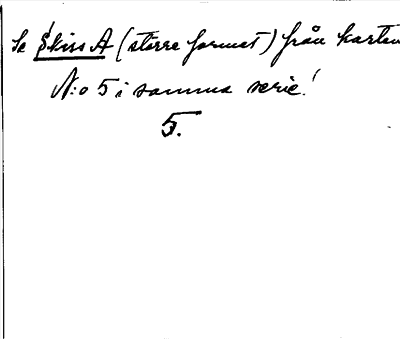 Se Skiss A (större format) från kartan
N:o 5 i samma serie!
5.